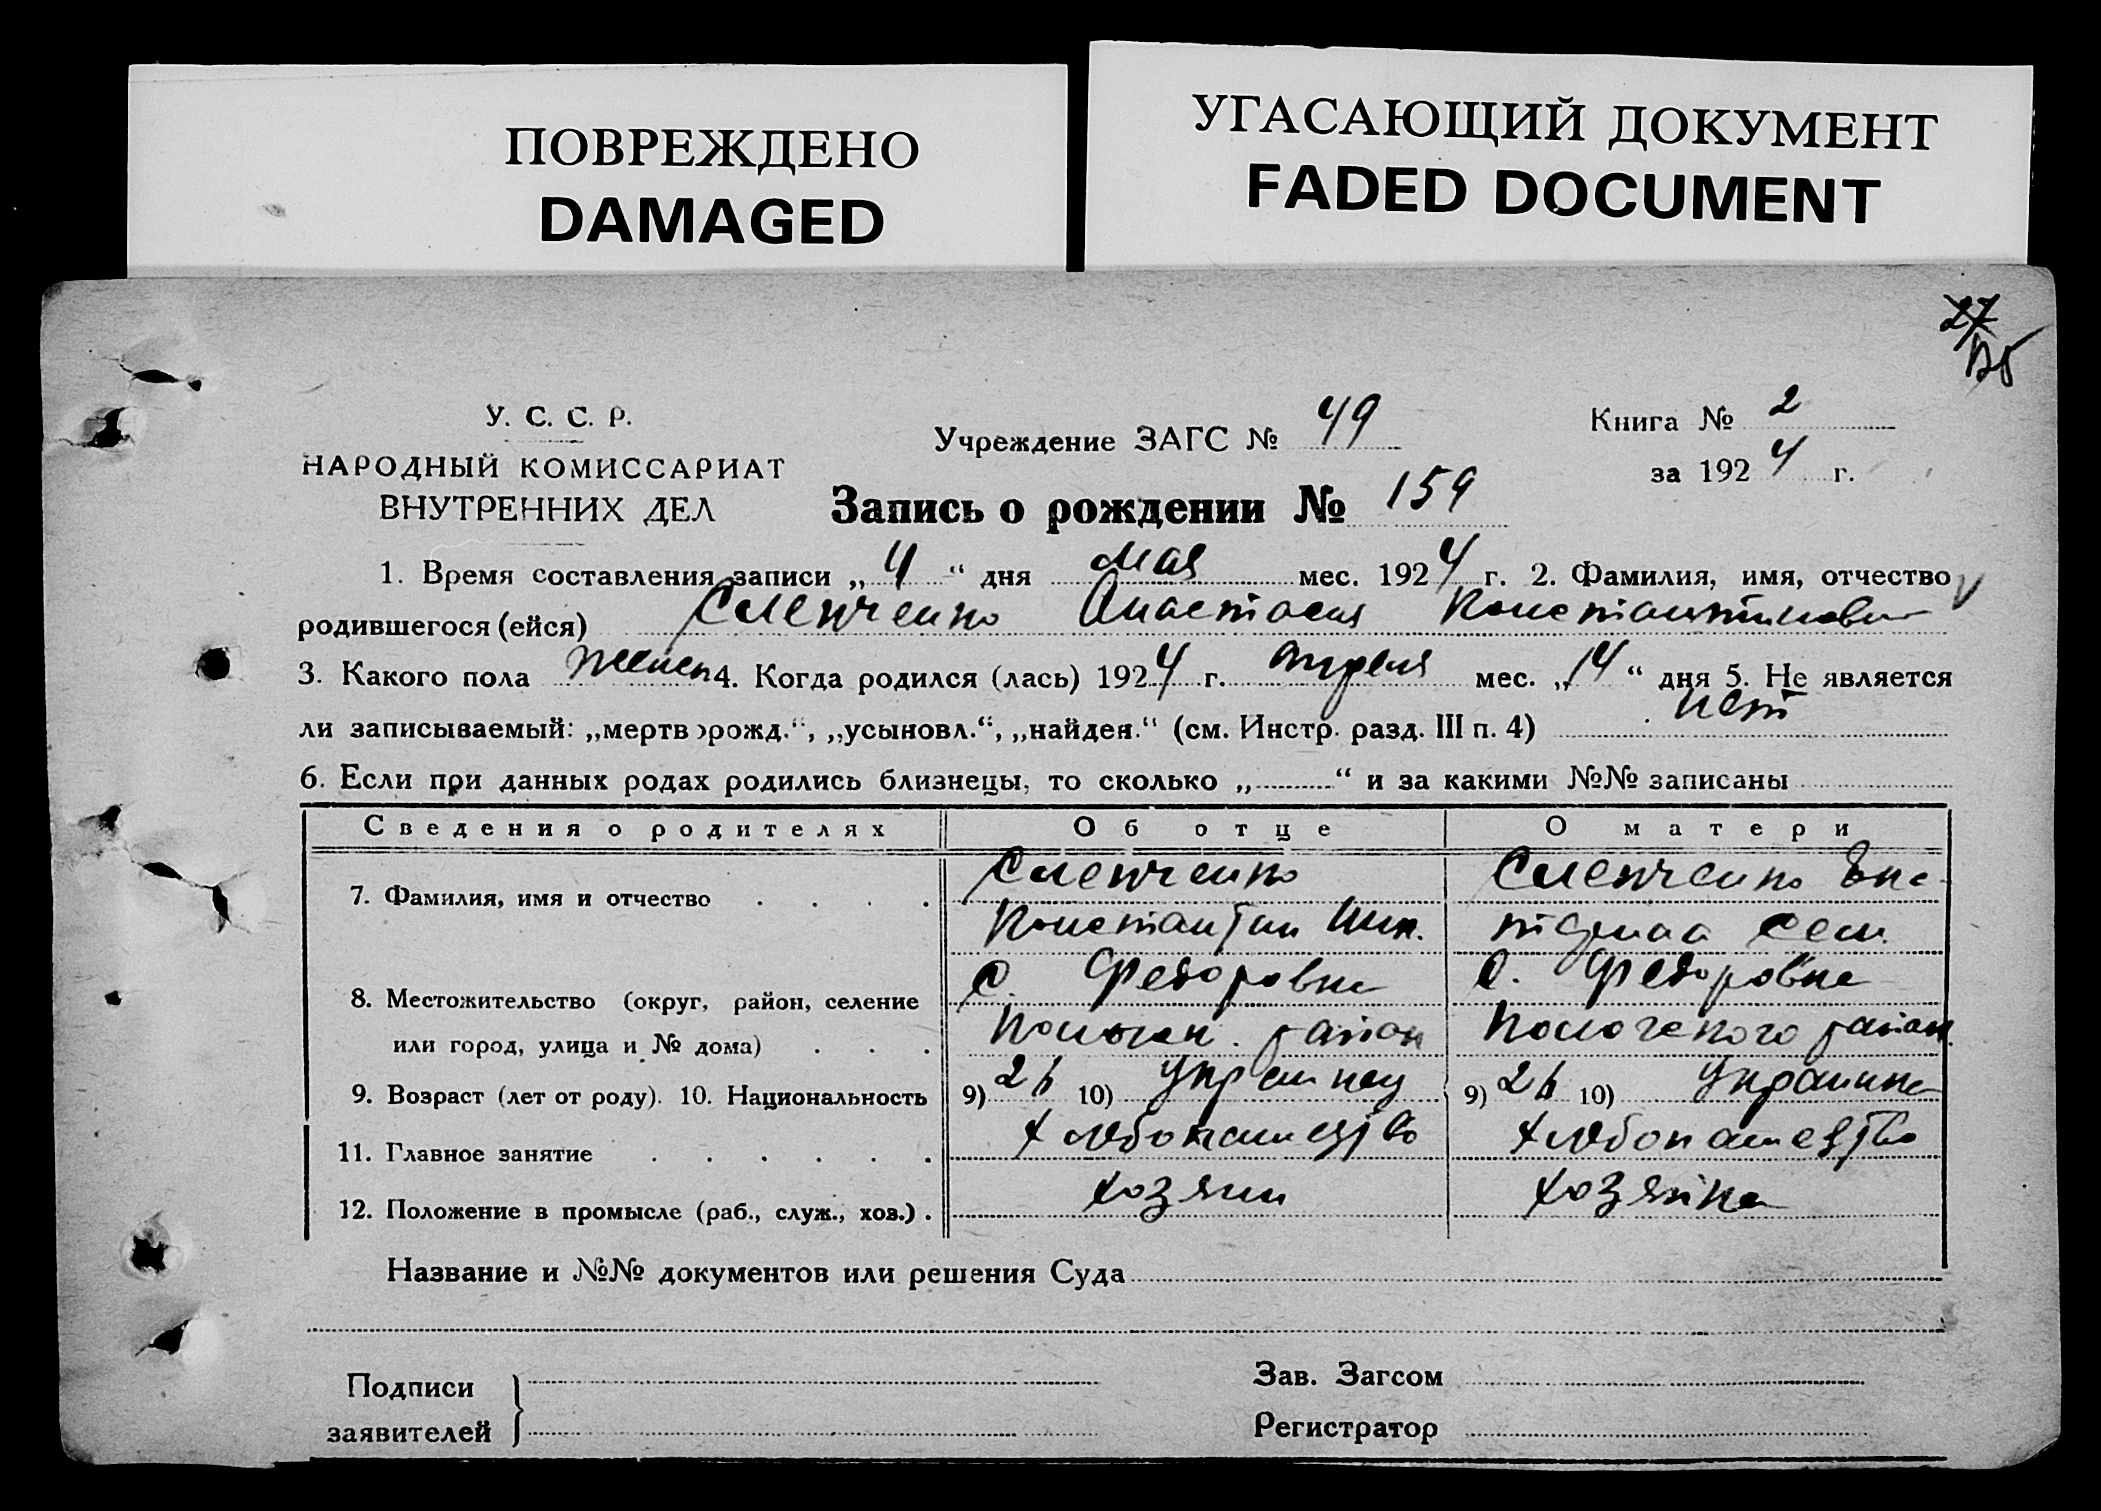 ПОВРЕЖДЕНО
DAMAGED
УГАСАЮЩИЙ ДОКУМЕНТ
FADED DOCUMENT
27
У. С. С. Р.
НАРОДНЫЙ КОМИССАРИАТ
ВНУТРЕННИХ ДЕЛ
Учреждение ЗАГС № 49
Книга № 2
за 1924 г.
Запись о рождении № 159
1. Время составления записи „4“ дня мая мес. 1924 г. 2. Фамилия, имя, отчество
родившегося (ейся) Слепченко Анастасия Константиновн
3. Какого пола женск 4. Когда родился (лась) 1924 г. Апреля мес. „14“ дня 5. Не является
ли записываемый: „мертворожд.“, „усыновл.“, „найден.“ (см. Инстр. разд. III п. 4) нет
6. Если при данных родах родились близнецы, то сколько „ “ и за какими №№ записаны
Сведения о родителях Об отце О матери
7. Фамилия, имя и отчество
Слепченко
Константин
Слепченко Ека-
Сем.
8. Местожительство (округ, район, селение
или город, улица и № дома)
С. Федоровка
район
С. Федоровка
район
9. Возраст (лет от роду). 10. Национальность 9) 26 10) Украинец 9) 26 10) Украинка
11. Главное занятие хлебопашество хлебопашество
12. Положение в промысле (раб., служ., хоз.) хозяин хозяйка
Название и №№ документов или решения Суда
Подписи
заявителей
Зав. Загсом
Регистратор